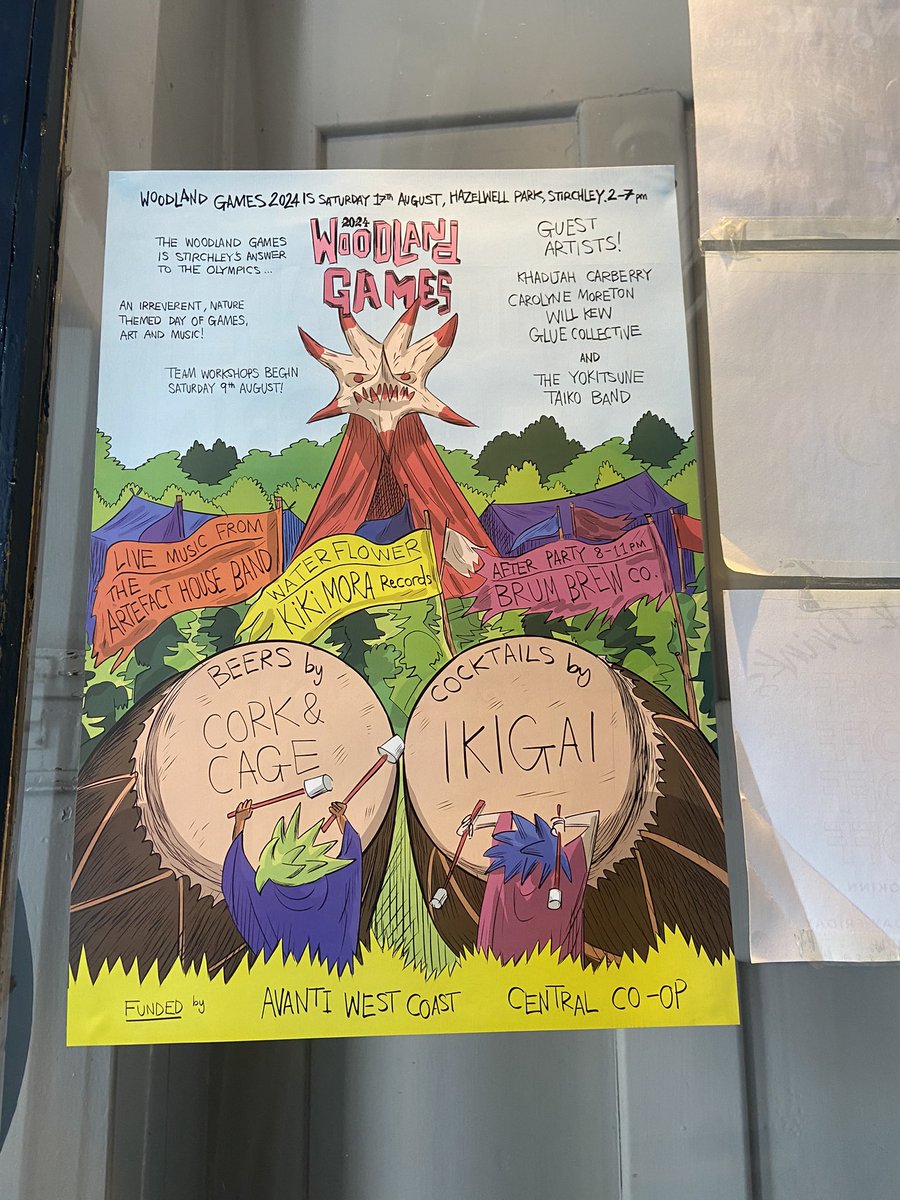 WOODLAND GAMES 2024 IS SATURDAY 17TH AUGUST, HAZELWELL PARK, STIRCHLEY. 2-7pm
2024
WOODLAND
GAMES
THE WOODLAND GAMES
IS STIRCHLEY'S ANSWER
TO THE OLYMPICS...
AN IRREVERENT, NATURE
THEMED DAY OF GAMES,
ART AND MUSIC!
TEAM WORKSHOPS BEGIN
SATURDAY 9TH AUGUST!
GUEST
ARTISTS!
KHADIJAH CARBERRY
CAROLYNE MORETON
WILL KEW
GLUE COLLECTIVE
AND
THE YOKITSUNE
TAIKO BAND
LIVE MUSIC FROM
THE
ARTEFACT HOUSE BAND
WATERFLOWER
KIKIMORA Records
AFTER PARTY 8-11PM
BRUM BREW CO.
BEERS by
CORK &
CAGE
COCKTAILS by
IKIGAI
FUNDED by
AVANTI WEST COAST
CENTRAL CO-OP